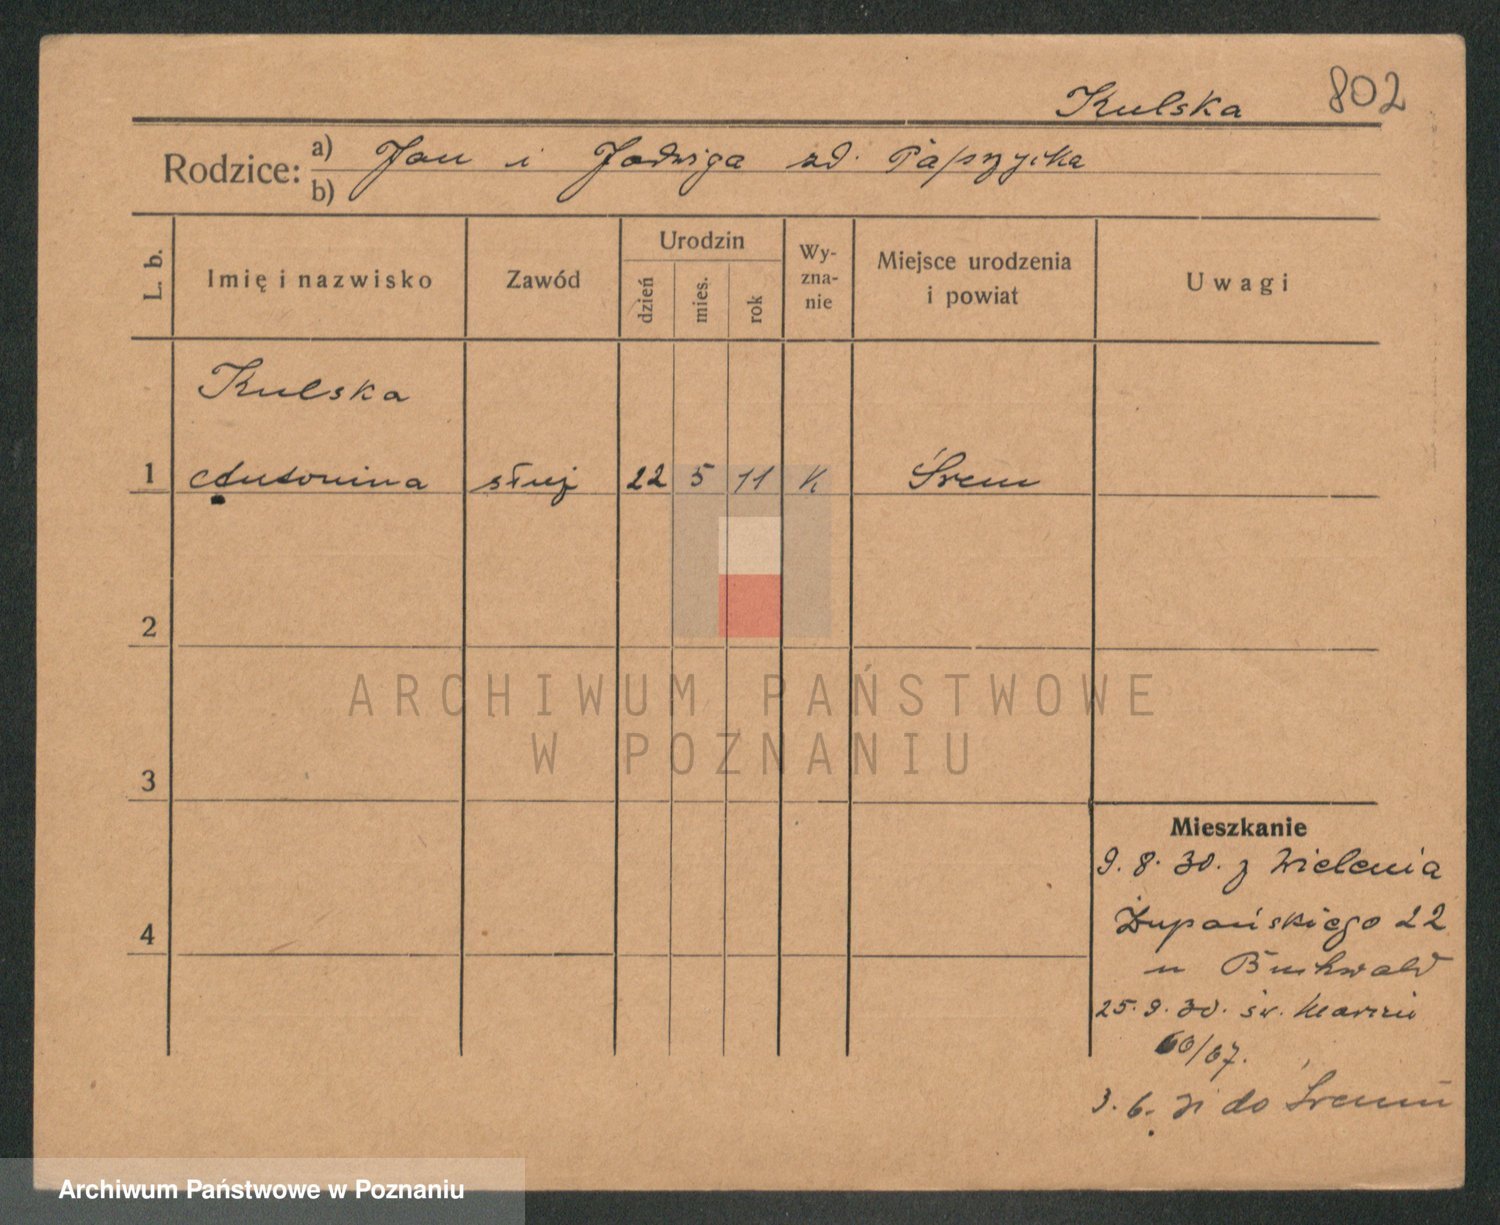 Kulska 802
Rodzice: a) b) Jan i Jadwiga zd.
L. b. Imię i nazwisko Zawód Urodzin dzień mies. rok Wy-zna-nie Miejsce urodzenia i powiat Uwagi
Kulska
1 Antonina służ 22 5 11 K Śrem
2
ARCHIWUM PAŃSTWOWE
W POZNANIU
3
Mieszkanie
9. 8. 30. z Wielenia
4 Żupańskiego 22
u Bukwald
25. 9. 30. św. Marcin
60/67.
3. 6. 31 do Śremu
Archiwum Państwowe w Poznaniu